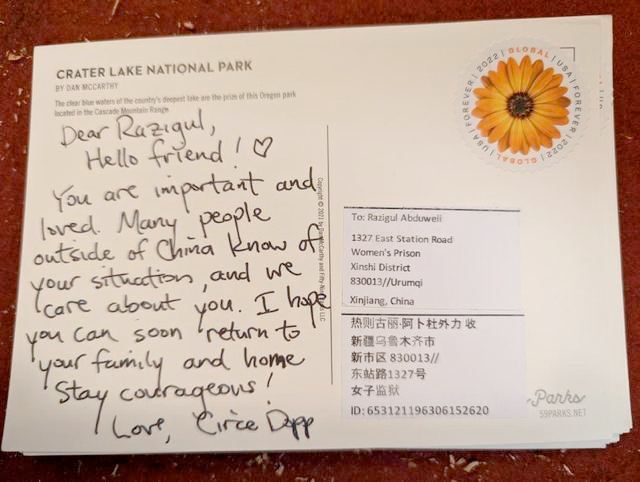 CRATER LAKE NATIONAL PARK
BY DAN MCCARTHY
The clear blue waters of the country's deepest lake are the prize of this Oregon park
located in the Cascade Mountain Range
Dear Razigul,
Hello friend! ♡
You are important and
loved. Many people
outside of China know of
your situation, and we
care about you. I hope
you can soon return to
your family and home
Stay courageous!
Love, Circe Depp
GLOBAL USA FOREVER 2022 GLOBAL USA FOREVER 2022
To: Razigul Abduweli
1327 East Station Road
Women's Prison
Xinshi District
830013//Urumqi
Xinjiang, China
热则古丽·阿卜杜外力 收
新疆乌鲁木齐市
新市区 830013//
东站路1327号
女子监狱
ID: 653121196306152620
Parks
59PARKS.NET